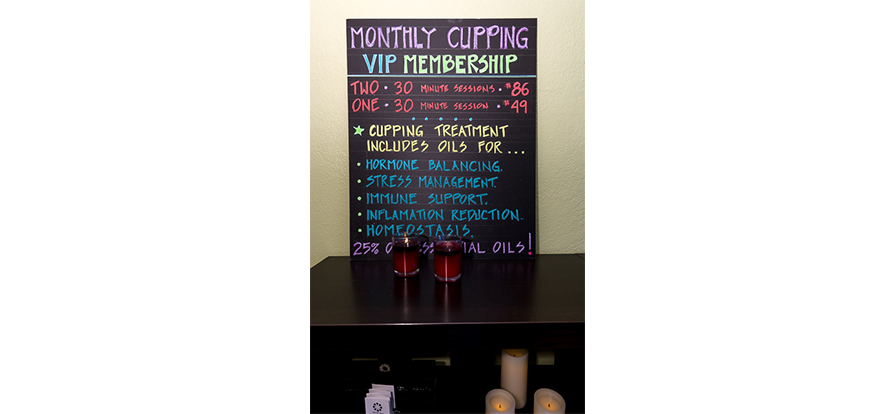 MONTHLY CUPPING
VIP MEMBERSHIP
TWO • 30 MINUTE SESSIONS • $86
ONE • 30 MINUTE SESSION • $49
CUPPING TREATMENT
INCLUDES OILS FOR...
• HORMONE BALANCING.
• STRESS MANAGEMENT.
• IMMUNE SUPPORT.
• INFLAMATION REDUCTION.
• HOMEOSTASIS.
25% OILS!